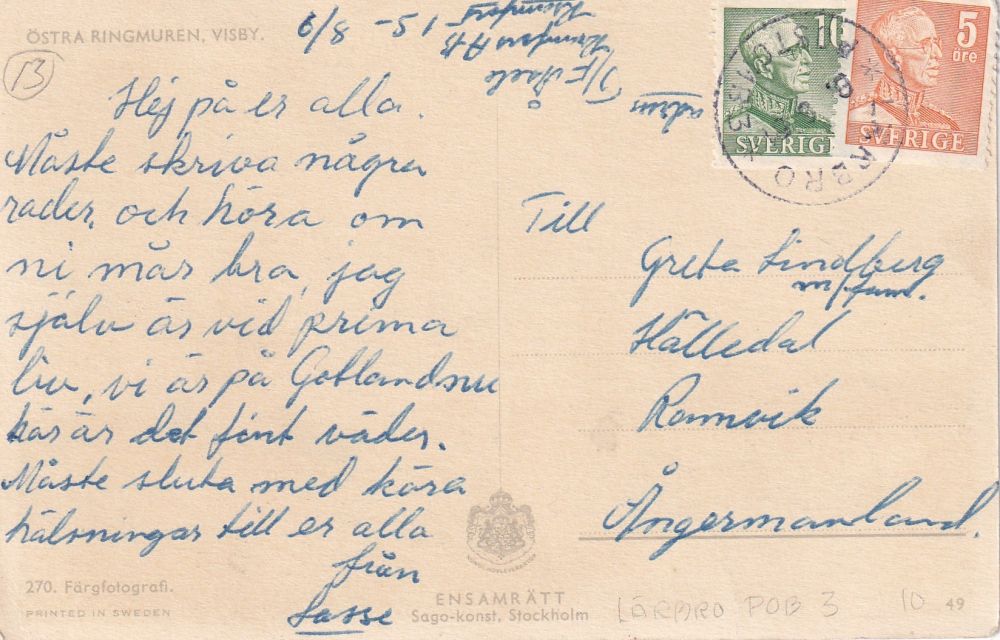 ÖSTRA RINGMUREN, VISBY.
13
15 - 8/9
Hej på er alla.
Måste skriva några
rader, och höra om
ni mår bra, jag
själv är vid prima
liv, vi är på Gotland nu
här är det fint väder.
Måste sluta med kära
hälsningar till er alla
från
Lasse
10
SVERIGE
5
öre
SVERIGE
Till
Greta Lindberg
m/fam.
Hälledal
Ramvik
Ångermanland.
270. Färgfotografi.
PRINTED IN SWEDEN
ENSAMRÄTT
Sago-konst, Stockholm
LÄRBRO POB 3
10
49